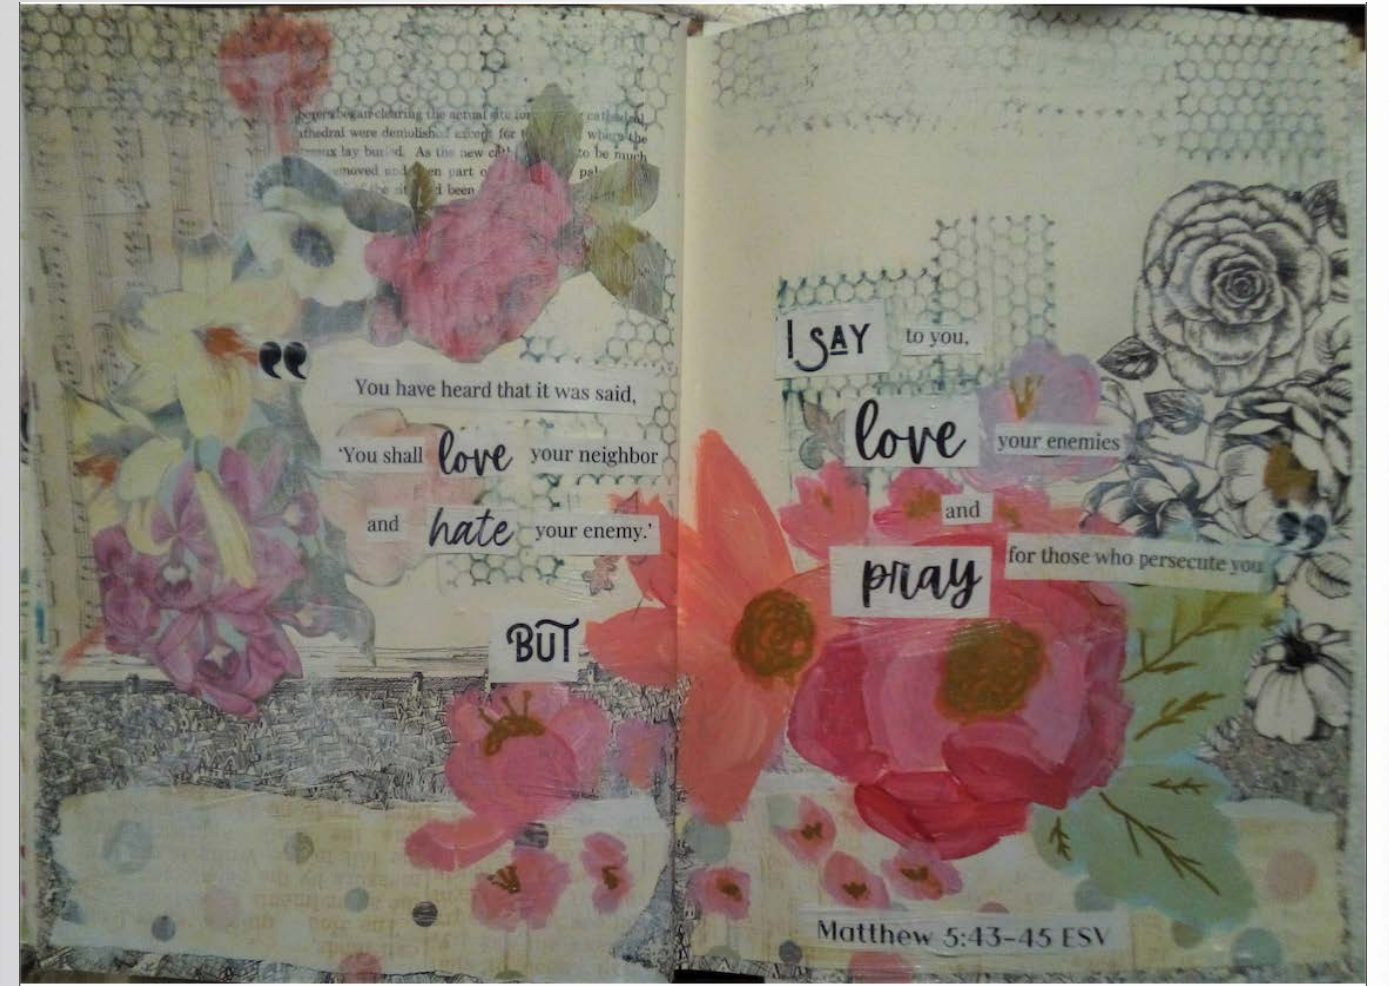 began clearing the actual site for cathedral
athedral were demolished except for where the
lay buried. As the new to be much
emoved and en part
of the sit d been
“
You have heard that it was said,
‘You shall love your neighbor
and hate your enemy.’
BUT
I SAY to you,
love your enemies
and
pray for those who persecute you
”
Matthew 5:43–45 ESV